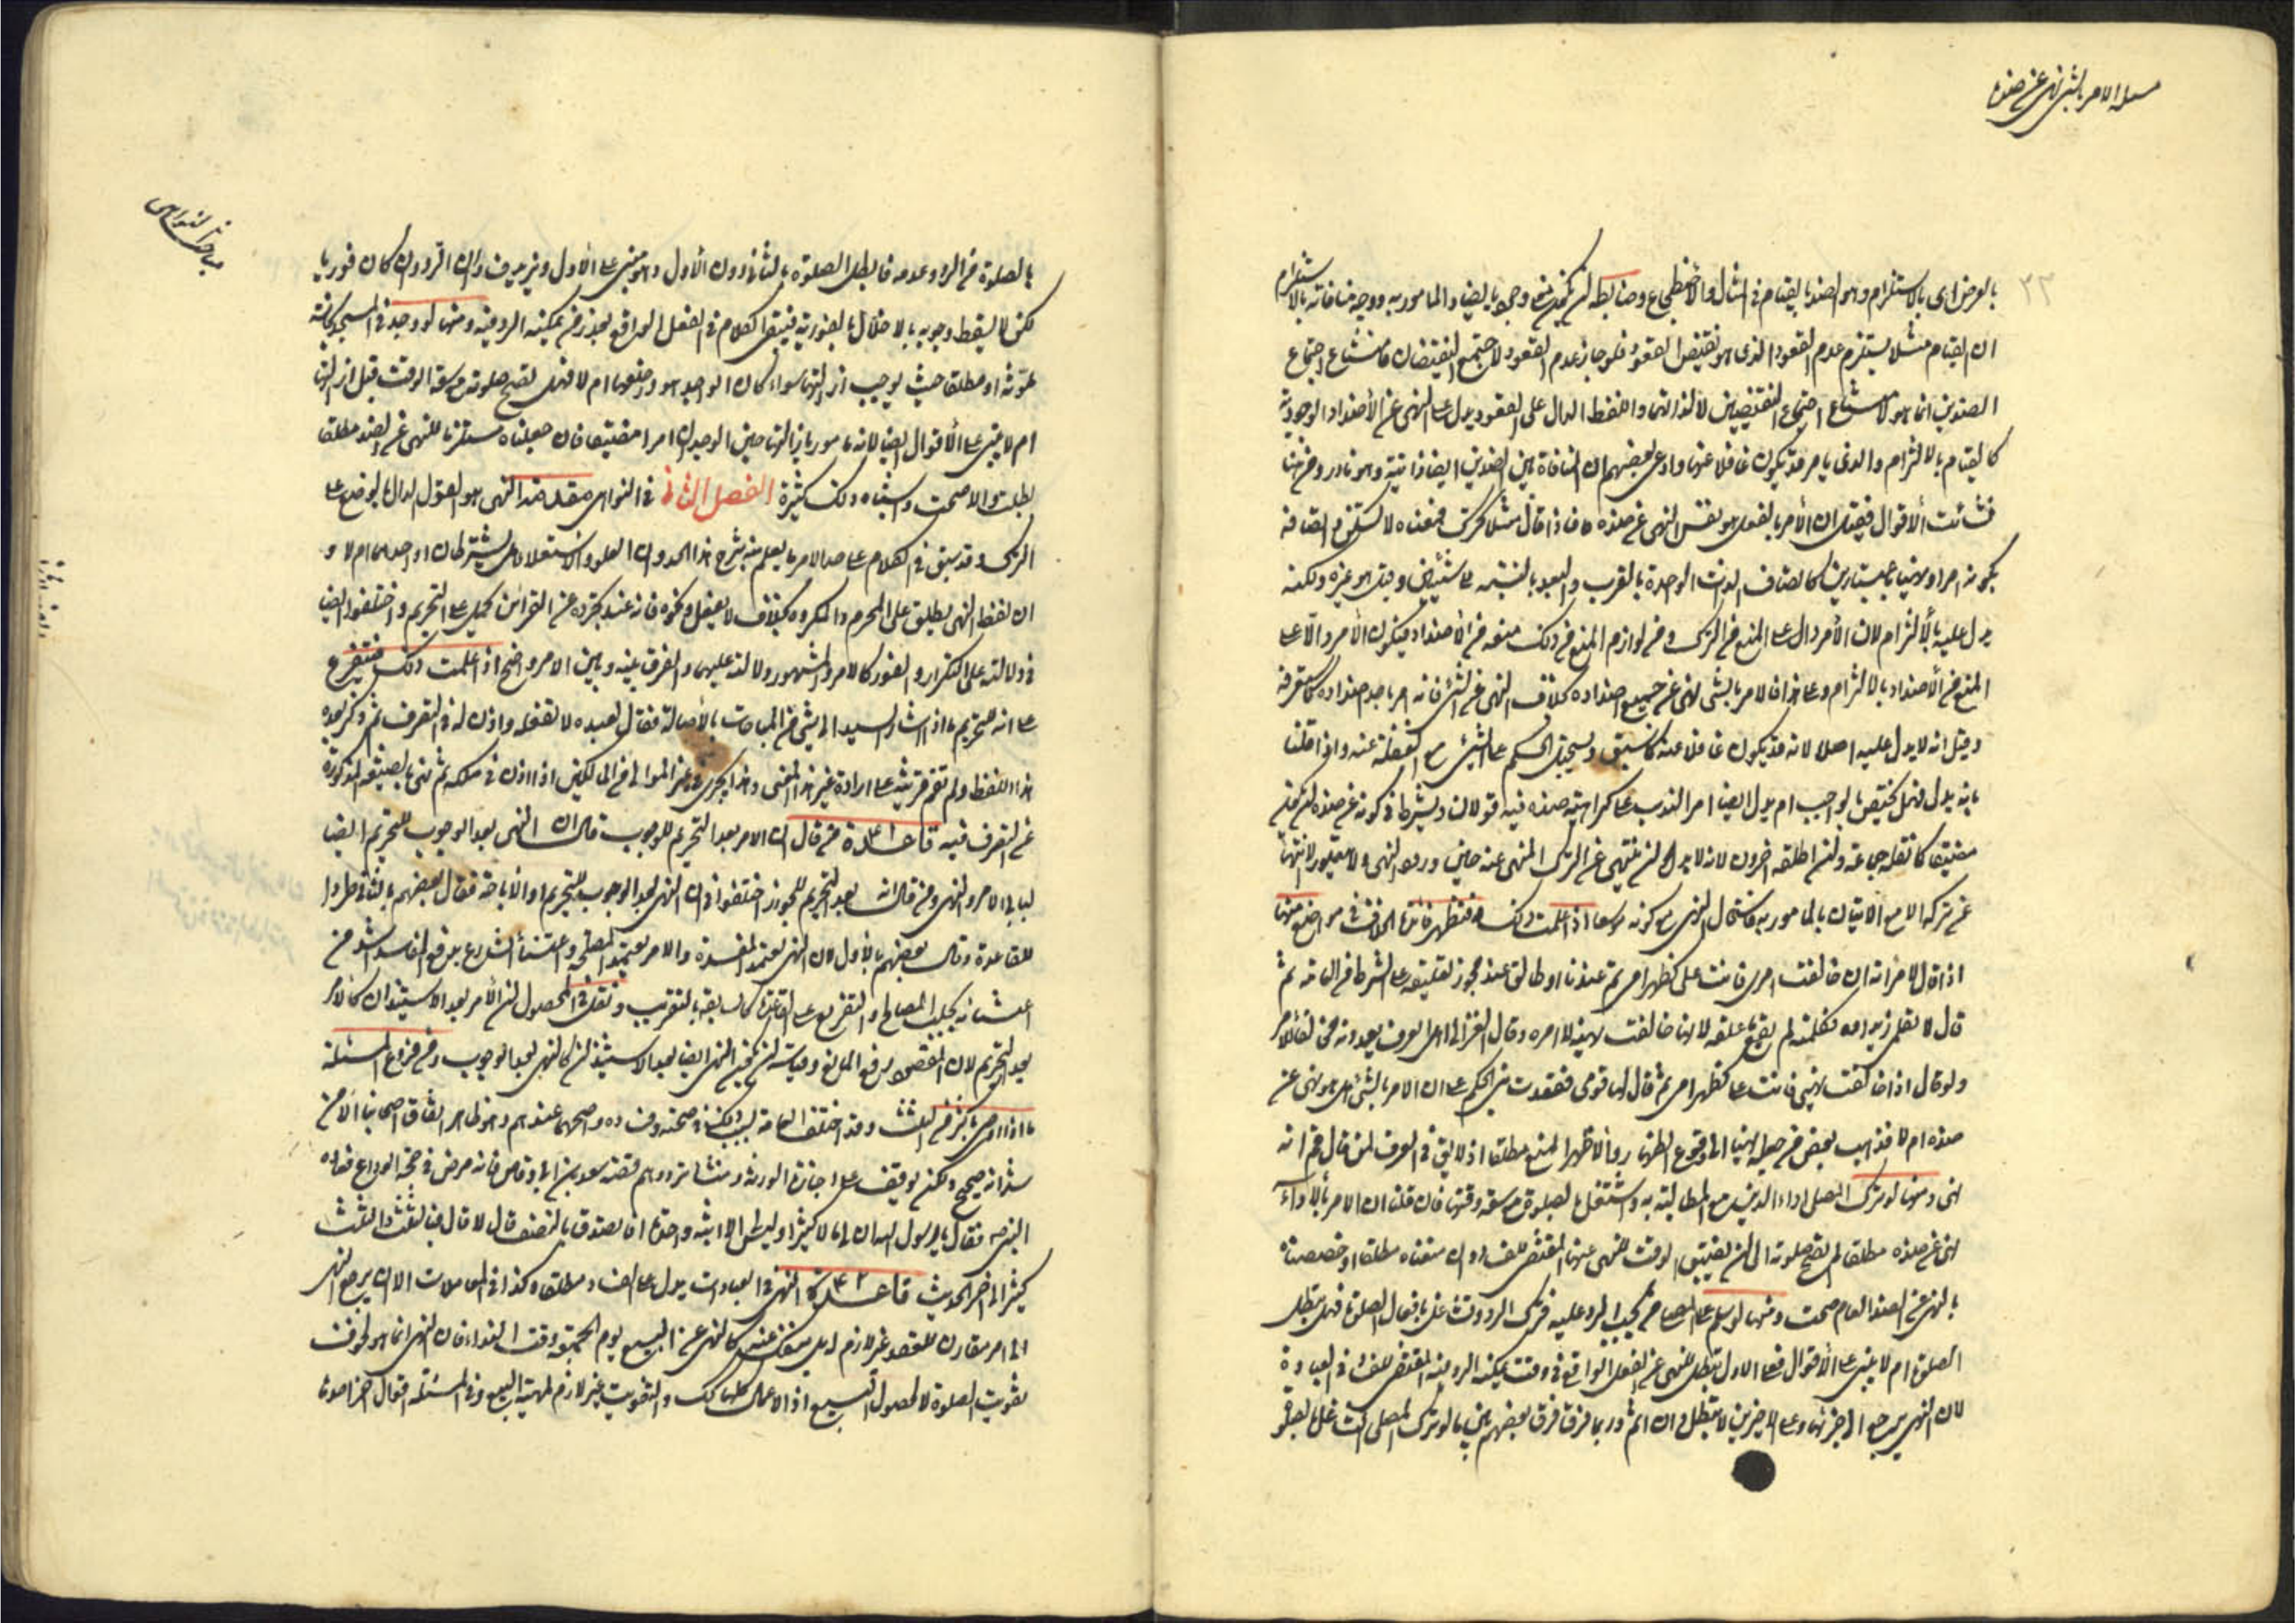 مسئلة الامر بالشئ نهى عن ضده
٢٢
بالعرض اى بالاستلزام وهو الضد بالقيام فى المثال والاضطجاع وضابطه ان يكون وجوديا يضاد المامور به ووجه منافاته بالاستلزام
ان القيام مثلا يستلزم عدم القعود الذى هو نقيض القعود فلو جاز عدم القعود لاجتمع النقيضان فامتناع اجتماع
الضدين انما هو لامتناع اجتماع النقيضين لا لذاتهما واللفظ الدال على القعود يدل على النهى عن الأضداد الوجودية
كالقيام بالالتزام والذى يامر قد يكون غافلا عنها وادعى بعضهم ان المنافاة بين الضدين ايضا ذاتية وهو نادر ومن هنا
نشأت الأقوال فقيل ان الأمر بالفعل هو نفس النهى عن ضده فاذا قال مثلا تحرك فمعناه لا تسكن واتصافه
بكونه امرا ونهيا باعتبارين كاتصاف الذات الواحدة بالقرب والبعد بالنسبة الى شيئين وقيل هو غيره ولكنه
يدل عليه بالالتزام لان الأمر دال على المنع من الترك ومن لوازم المنع من ذلك منعه من الأضداد فيكون الأمر دالا على
المنع من الأضداد بالالتزام وعلى هذا فالامر بالشى نهى عن جميع اضداده بخلاف النهى عن الشئ فانه امر باحد اضداده كما ستعرفه
وقيل انه لا يدل عليه اصلا لانه قد يكون غافلا عنه كما سبق ويستحيل الحكم على الشئ مع الغفلة عنه واذا قلنا
بانه يدل فهل يختص بالواجب ام يدل ايضا امر الندب على كراهته ضده فيه قولان ويشترط فى كونه نهيا عن ضده ان يكون
مضيقا كما نقله جماعة وان اطلقه اخرون لانه لابد ان ينتهى عن الترك المنهى عنه حين ورود النهى ولا يتصور الانتهاء
عن تركه الا مع الاتيان بالمامور به فاستحال النهى مع كونه موسعا اذا علمت ذلك فتظهر فائدة الخلاف فى مواضع منها
اذا قال لامراته ان خالفت امرى فانت على كظهر امى ثم عندنا او طالق عند مجوز تعليقه على الشرط من العامة ثم
قال لا تكلمى زيدا فكلمته لم يقع ما علقه لانها خالفت نهيه لا امره وقال الغزالى اهل العرف يعدونه مخالفا للامر
ولو قال اذا خالفت نهيى فانت على كظهر امى ثم قال لها قومى فقعدت بنى الحكم على ان الامر بالشئ هل هو نهى عن
ضده ام لا فذهب بعض من جعله نهيا الى وقوع الظهار والأظهر المنع مطلقا اذ لا يقال فى العرف لمن قال قم انه
نهى ومنها لو ترك المصلى اداء الدين مع المطالبة به واشتغل بالصلوة مع سعة وقتها فان قلنا ان الامر بالاداء
نهى عن ضده مطلقا لم تصح صلوته الى ان يضيق الوقت للنهى عنها المقتضى للفساد وان منعناه مطلقا او خصصناه
بالنهى عن الضد العام صحت ومنها لو سلم على المصلى من يجب الرد عليه فترك الرد وتشاغل بافعال الصلوة فهل تبطل
الصلوة ام لا يبنى على الأقوال فعلى الاول تبطل للنهى عن الفعل الواقع فى وقت يمكنه الرد فيه المقتضى للفساد فى العبادة
لان النهى يرجع الى جزئها وعلى الاخيرين لا تبطل وان اثم وربما فرق بعضهم بين ما لو ترك المصلى التشاغل بافعال
مباحث النواهى
بالصلوة من الرد وعدمه فابطل الصلوة بالثانى دون الأول وهو مبنى على الأول ويزيد ان الرد وان كان فوريا
لكن لا يسقط وجوبه بالاخلال بالفورية فيبقى الكلام فى الفعل الواقع بعد زمن يمكنه الرد فيه ومنها لو وجد فى المسجد نجاسة
ملوثة او مطلقا حيث يوجب ازالتها سواء كان الواجد هو واضعها ام لا فهل تصح صلوته مع سعة الوقت قبل ازالتها
ام لا يبنى على الأقوال ايضا لانه مامور بازالتها حين الوجدان امرا مضيقا فان جعلناه مستلزما للنهى عن الضد مطلقا
بطلت والا صحت واشباه ذلك كثيرة الفصل الثانى فى النواهى مقدمة النهى هو القول الدال بالوضع على
الترك وقد سبق فى الكلام على حد الامر ما يعلم منه شرح هذا الحد وان العلو والاستعلاء هل يشترطان او احدهما ام لا و
ان لفظ النهى يطلق على المحرم والمكروه بخلاف لا تفعل ونحوه فانه عند تجرده عن القرائن يحمل على التحريم واختلفوا ايضا
فى دلالته على التكرار والفور كالامر والمشهور دلالته عليهما والفرق بينه وبين الامر واضح اذا علمت ذلك فيتفرع
على انه للتحريم ما اذا اشار السيد الى شئ من المباحات بالأصالة فقال لعبده لا تفعله واذن له فى التصرف ثم ذكر بعده
هذا اللفظ ولم تقم قرينة على ارادة غير هذا المعنى وهذا يجرى فى غير الموالى من المالكين اذا اذن فى ملكه ثم نهى بالصيغة المذكورة
عن التصرف فيه قاعدة من قال ان الامر بعد التحريم للوجوب قال ان النهى بعد الوجوب للتحريم ايضا
لبابى الامر والنهى ومن قال انه بعد التحريم للجواز اختلفوا فى ان النهى بعد الوجوب للتحريم او الاباحة فقال بعضهم بالثانى طردا
للقاعدة وقال بعضهم بالأول لان النهى يعتمد المفسدة والامر يعتمد المصلحة واعتناء الشارع بدفع المفاسد اشد من
اعتنائه بجلب المصالح والتفريع على القاعدة كالسابقة بالتقريب ونقل فى المحصول ان الأمر بعد الاستيذان كالامر
بعد التحريم لان المقتضى رفع المانع وقياسه ان يكون النهى ايضا بعد الاستيذان كالنهى بعد الوجوب ومن فروع المسئلة
ما اذا اوصى باكثر من الثلث وقد اختلف العامة بسبب ذلك فى صحته وفساده واصحهما عندهم وهو ظاهر اتفاق اصحابنا الا من
شذ انه صحيح ولكن يوقف على اجازة الورثة ومنشا ترددهم قصة سعد بن ابى وقاص فانه مرض فى حجة الوداع فعاده
النبى ص فقال يا رسول الله ان لى مالا كثيرا وليس لى الا ابنة واحدة افاتصدق بالنصف قال لا قال فبالثلث قال الثلث
كثير الى اخر الحديث قاعدة النهى فى العبادات يدل على الفساد مطلقا وكذا فى المعاملات الا ان يرجع النهى
الى امر مقارن للعقد غير لازم له بل منفك عنه كالنهى عن البيع يوم الجمعة وقت النداء فان النهى انما هو لخوف
تفويت الصلوة لا لخصوص البيع اذ الاعمال كلها كذلك والتفويت غير لازم لمهية البيع وفى المسئلة اقوال اخر اصولها